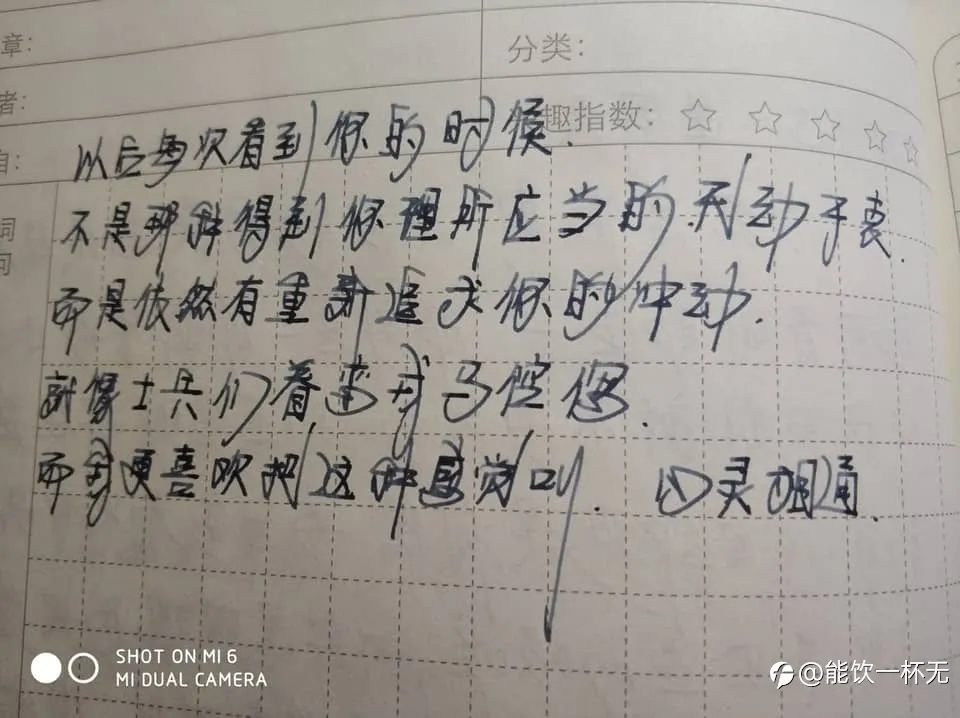 章:
分类:
者:
趣指数:
自:
词
句
以后每次看到你的时候.
不是那种得到你理所应当的.无动于衷.
而是依然有重新追求你的冲动.
就像士兵们看
而我更喜欢把这种感觉叫. 心灵相通.
SHOT ON MI 6
MI DUAL CAMERA
@能饮一杯无